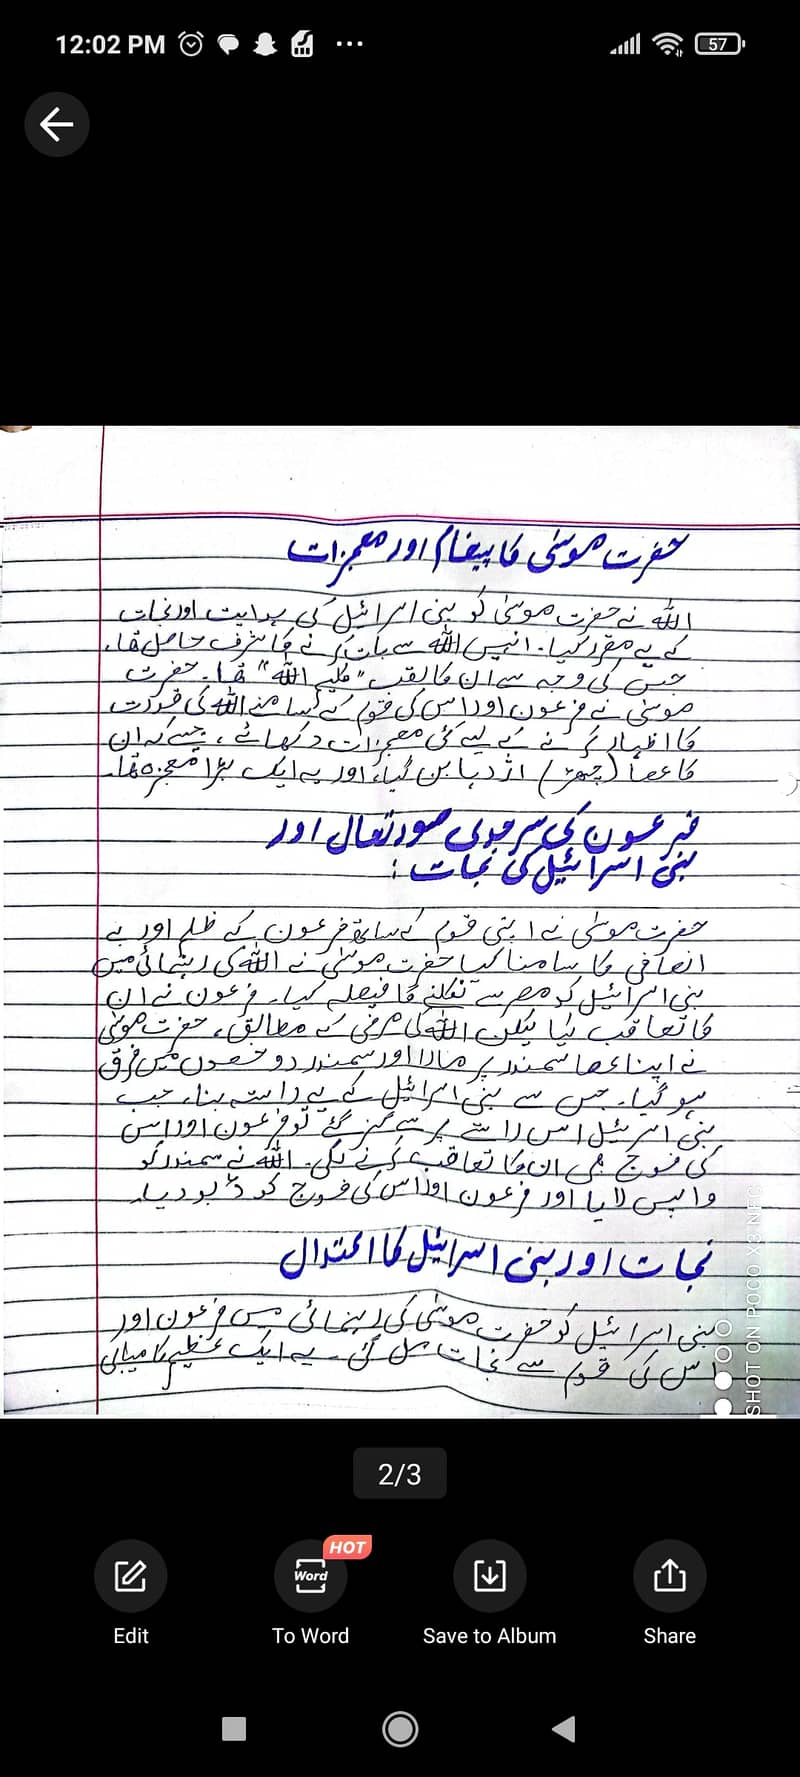 12:02 PM
57
حضرت موسیٰ کا پیغام اور معجزات
اللہ نے حضرت موسیٰ کو بنی اسرائیل کی ہدایت اور نجات
کے لیے مقرر کیا۔ انہیں اللہ سے بات کرنے کا شرف حاصل تھا،
جس کی وجہ سے ان کا لقب "کلیم اللہ" تھا۔ حضرت
موسیٰ نے فرعون اور اس کی قوم کے سامنے اللہ کی قدرت
کا اظہار کرنے کے لیے کئی معجزات دکھائے، جیسے کہ ان
کا عصا (چھڑ) اژدہا بن گیا، اور یہ ایک بڑا معجزہ تھا۔
فرعون کی سرمدی صورتعال اور
بنی اسرائیل کی نجات :
حضرت موسیٰ نے اپنی قوم کے ساتھ فرعون کے ظلم اور بے
انصافی کا سامنا کیا حضرت موسیٰ نے اللہ کی رہنمائی میں
بنی اسرائیل کو مصر سے نکلنے کا فیصلہ کیا۔ فرعون نے ان
کا تعاقب کیا لیکن اللہ کی مرضی کے مطابق، حضرت موسیٰ
نے اپنا عصا سمندر پر مارا اور سمندر دو حصوں میں فرق
ہو گیا۔ جس سے بنی اسرائیل کے لیے راستہ بنا، جب
بنی اسرئیل اس راستے پر سے گزر گئے تو فرعون اور اس
کی فوج بھی ان کا تعاقب کرنے لگی۔ اللہ نے سمندر کو
واپس لایا اور فرعون اور اس کی فوج کو ڈبو دیا۔
نجات اور بنی اسرائیل کا اعتدال
بنی اسرائیل کو حضرت موسیٰ کی رہنمائی میں فرعون اور
اس کی قوم سے نجات مل گئی۔ یہ ایک عظیم کامیابی
SHOT ON POCO X3 NFC
2/3
HOT
Word
Edit
To Word
Save to Album
Share